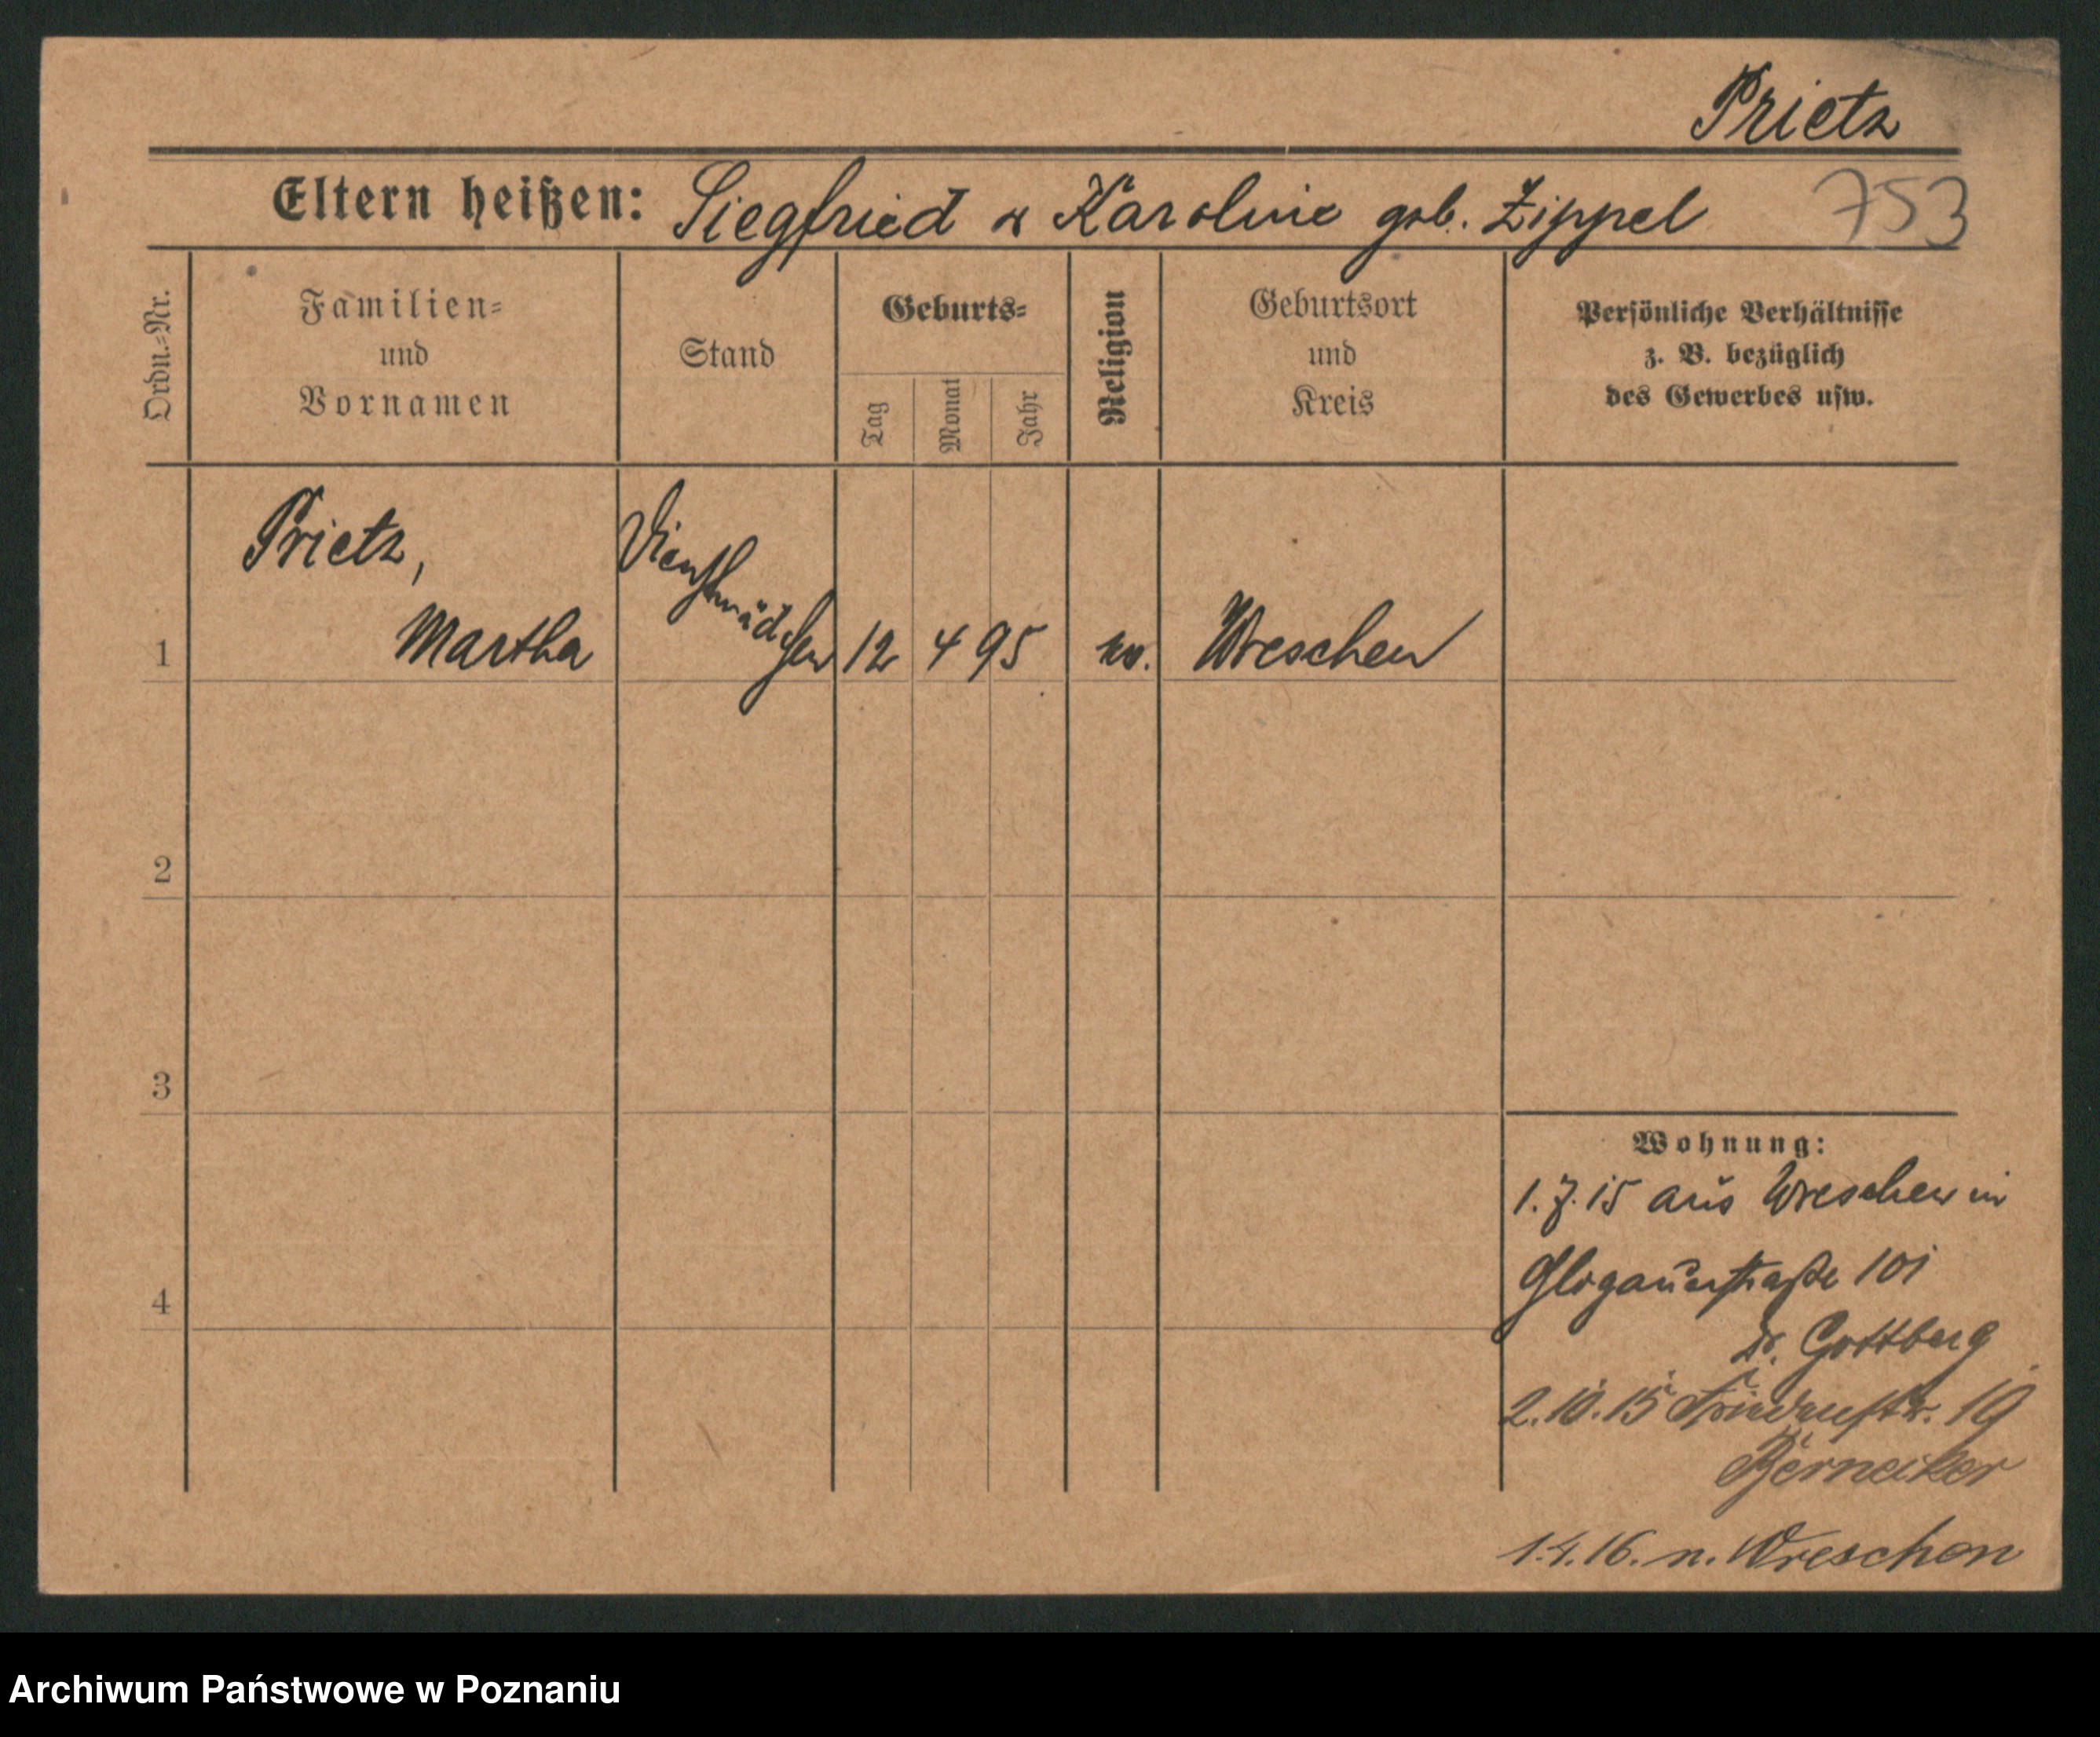 Prietz
Eltern heißen: Siegfried u Karoline geb. Zippel 753
Ordn.=Nr. Familien= und Vornamen Stand Geburts= Tag Monat Jahr Religion Geburtsort und Kreis Persönliche Verhältnisse z. B. bezüglich des Gewerbes usw.
Prietz,
1 Martha Dienstmädchen 12 4 95 ev. Wreschen
2
3
4
Wohnung:
1.7.15 aus Wreschen in
Glogauerstraße 101
Dr. Gottberg
2.10.15 19
Bernecker
1.4.16. n. Wreschen
Archiwum Państwowe w Poznaniu